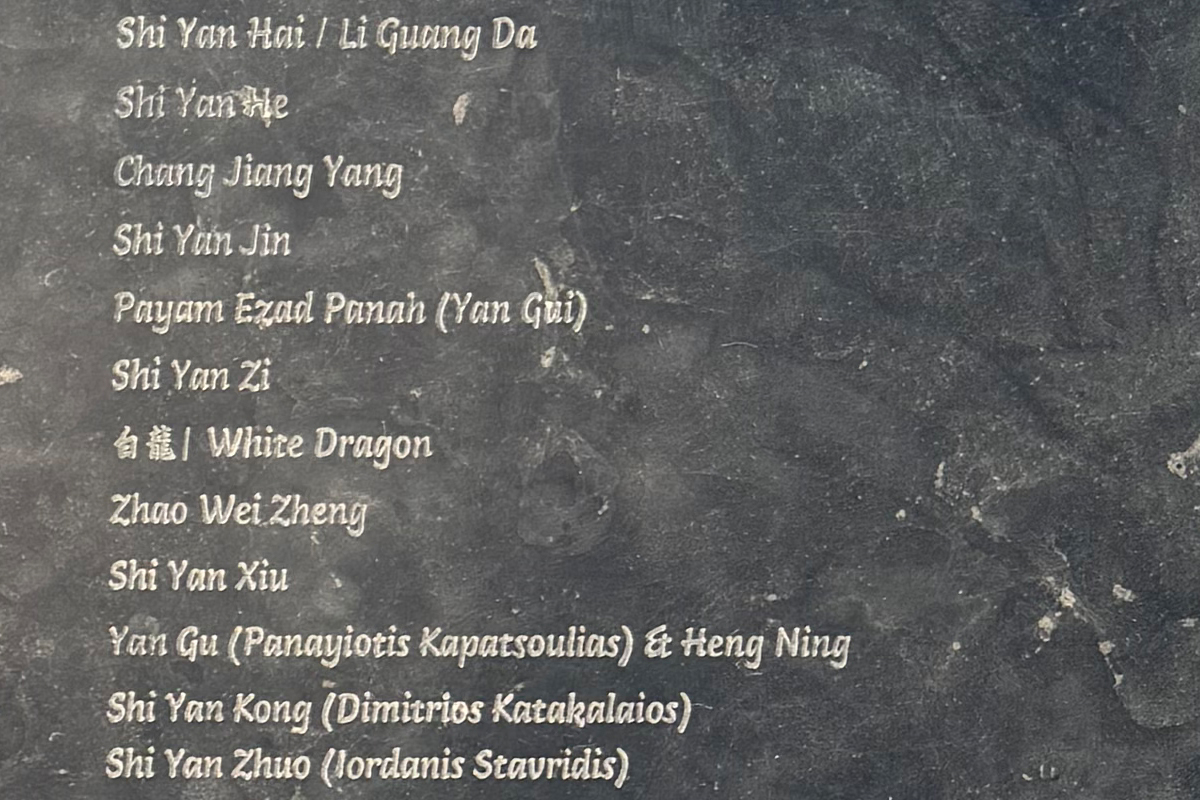 Shi Yan Hai / Li Guang Da
Shi Yan He
Chang Jiang Yang
Shi Yan Jin
Payam Ezad Panah (Yan Gui)
Shi Yan Zi
白龍 | White Dragon
Zhao Wei Zheng
Shi Yan Xiu
Yan Gu (Panayiotis Kapatsoulias) & Heng Ning
Shi Yan Kong (Dimitrios Katakalaios)
Shi Yan Zhuo (Iordanis Stavridis)